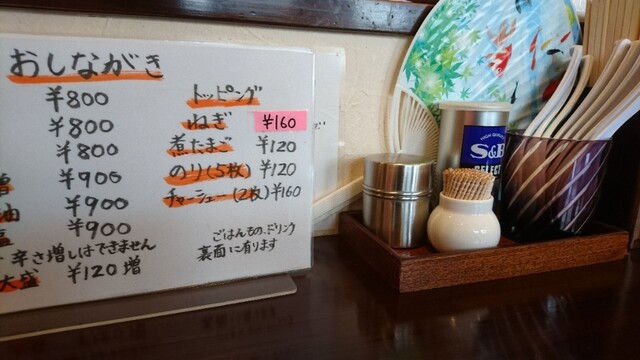 おしながき
¥800
¥800
¥800
増 ¥900
油 ¥900
塩 ¥900
辛さ増しはできません
大盛 ¥120増
トッピング
ねぎ ¥160
煮たまご ¥120
のり(5枚) ¥120
チャーシュー(2枚) ¥160
ごはんもの、ドリンク
裏面に有ります
S&B
SELECT